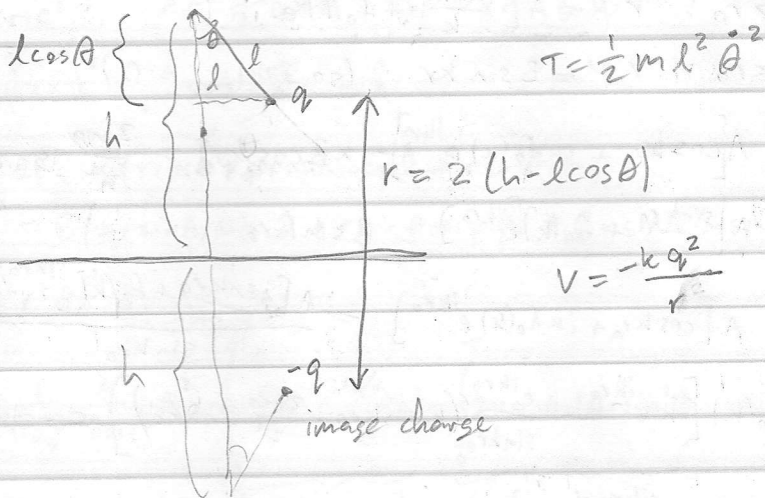 l cosθ
θ
l
l
q
h
T = 1/2 m l² θ̇²
r = 2 (h - l cosθ)
V = -k q² / r
h
-q
image charge